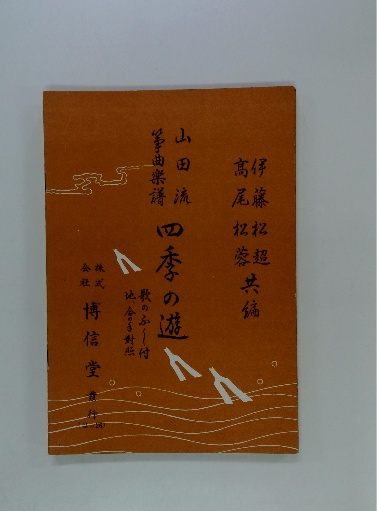 伊藤松超
高尾松蓉
共編
山田流
箏曲楽譜
四季の遊
歌のふし付
地合の手対照
株式
会社
博信堂
発行